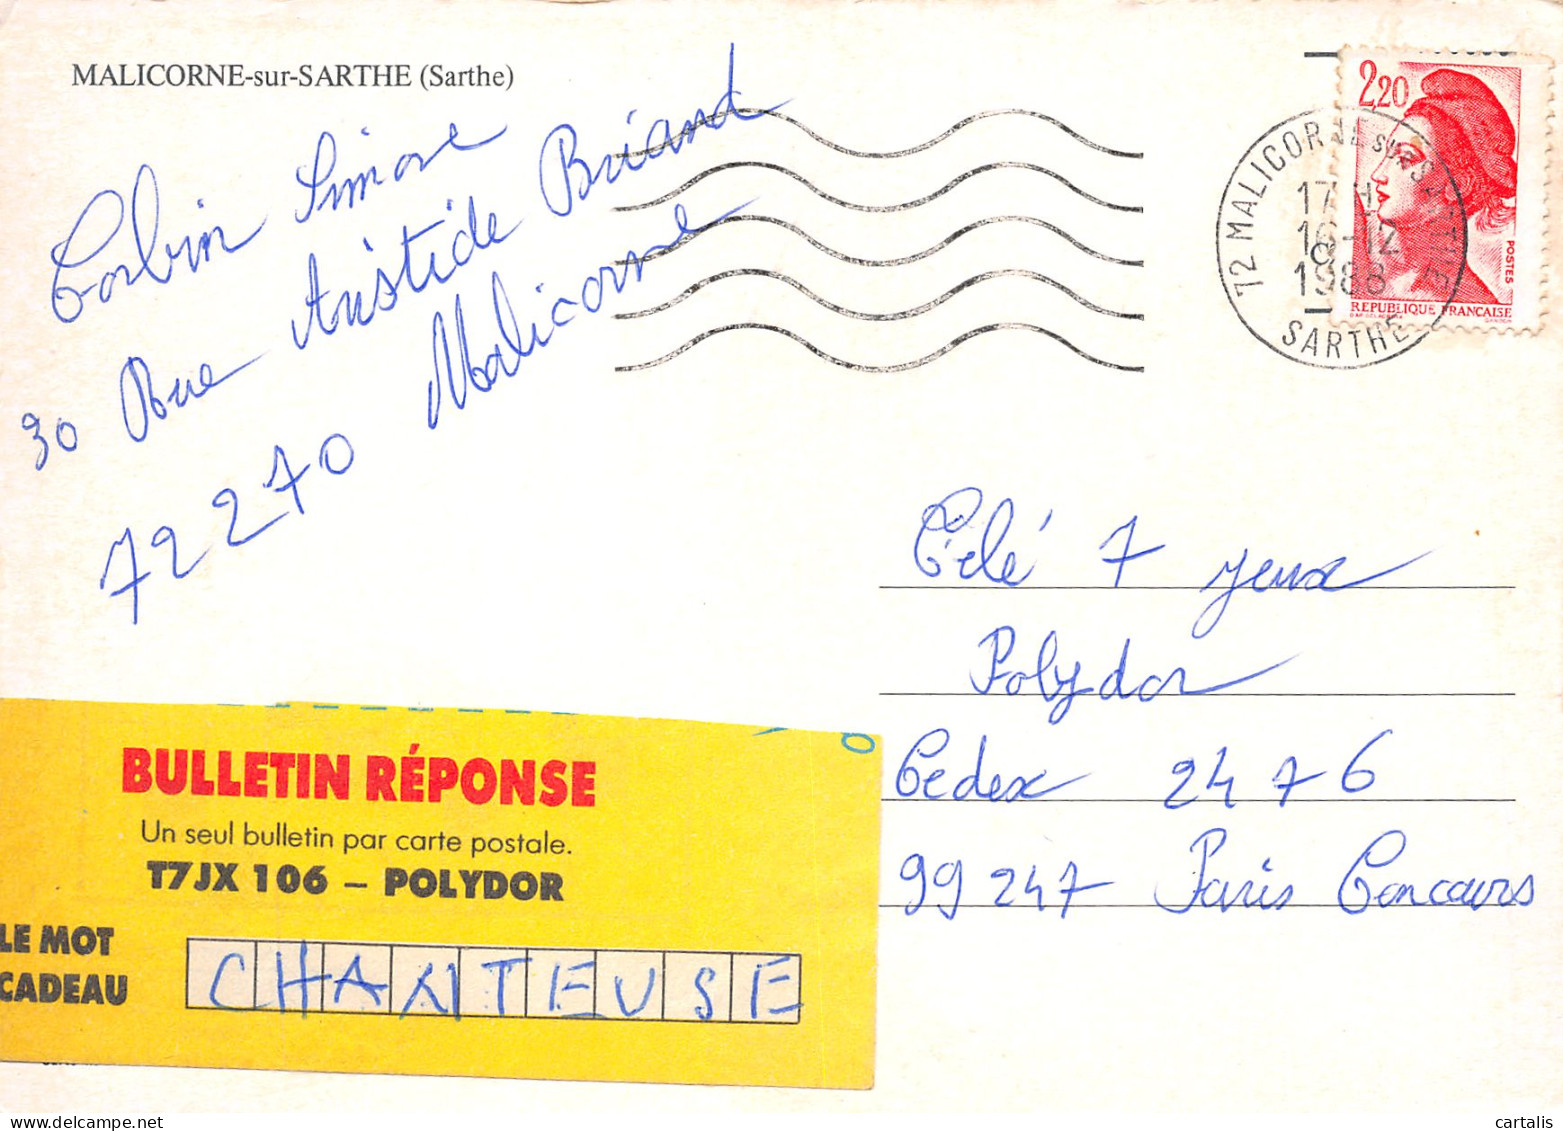 MALICORNE-sur-SARTHE (Sarthe)
Corbin Simone
30 Rue Aristide Briand
72270 Malicorne
2,20
POSTES
REPUBLIQUE FRANCAISE
72 MALICORNE SUR SARTHE
17 H
16-12
1988
SARTHE
Télé 7 jeux
Polydor
Cedex 2476
99247 Paris Concours
BULLETIN RÉPONSE
Un seul bulletin par carte postale.
T7JX 106 – POLYDOR
LE MOT
CADEAU
CHANTEUSE
cartalis